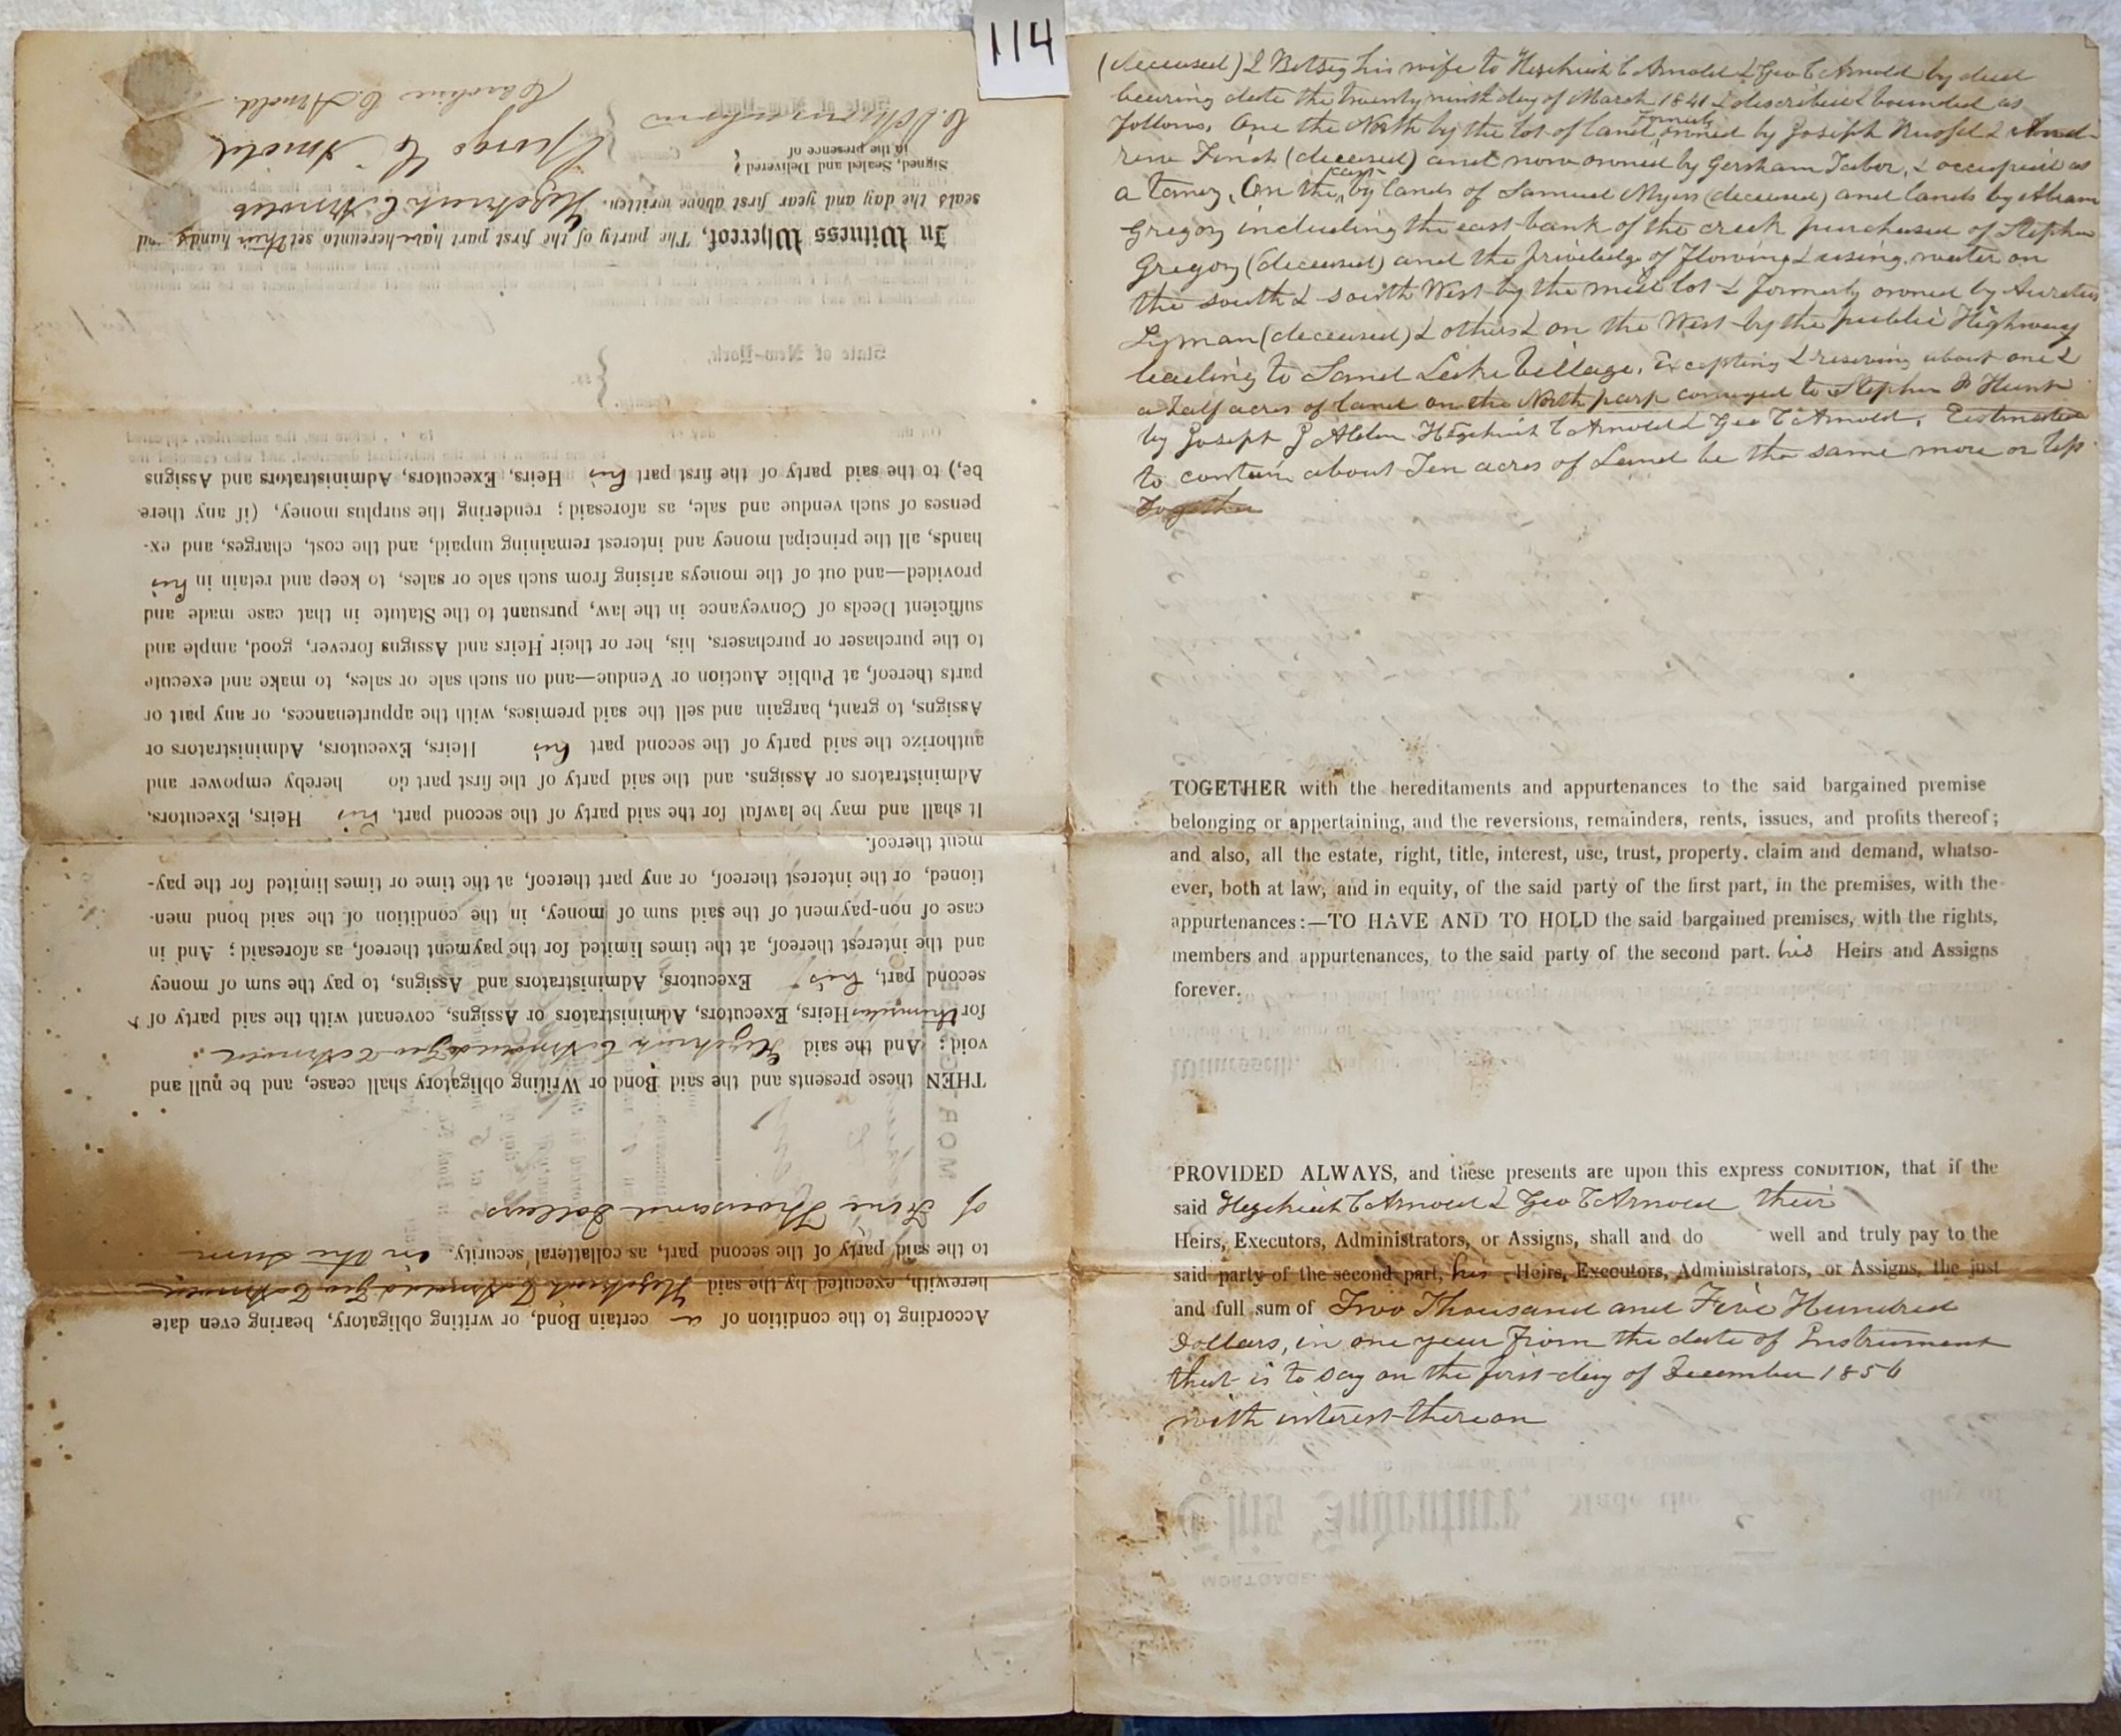 114
(deceased) & Betsey his wife to Hezekiah C Arnold & Geo C Arnold by deed
bearing date the twenty ninth day of March 1841 & described & bounded as
follows. One the North by the lot of land formerly owned by Joseph Russel & And-
rew Finch (deceased) and now owned by Gersham Tabor, & occupied as
a Tanery, On the east by lands of Samuel Myers (deceased) and lands by Abram
Gregory including the east bank of the creek purchased of Stephen
Gregory (deceased) and the priviledge of flowing & using water on
the south & south West by the mill lot & formerly owned by
Lyman (deceased) & others & on the West by the public Highway
leading to Sand Lake Village, Excepting & reserving about one &
a half acres of land on the North part conveyed to Stephen Hunt
by Joseph J Alden Hezekiah C Arnold & Geo C Arnold, Eestimated
to contain about Ten acres of Land be the same more or less
Together
TOGETHER with the hereditaments and appurtenances to the said bargained premise
belonging or appertaining, and the reversions, remainders, rents, issues, and profits thereof;
and also, all the estate, right, title, interest, use, trust, property. claim and demand, whatso-
ever, both at law, and in equity, of the said party of the first part, in the premises, with the
appurtenances:—TO HAVE AND TO HOLD the said bargained premises, with the rights,
members and appurtenances, to the said party of the second part. his Heirs and Assigns
forever.
PROVIDED ALWAYS, and these presents are upon this express CONDITION, that if the
said Hezekiah C Arnold & Geo C Arnold their
Heirs, Executors, Administrators, or Assigns, shall and do well and truly pay to the
said party of the second part, his Heirs, Executors, Administrators, or Assigns, the just
and full sum of Two Thousand and Five Hundred
Dollars, in one year from the date of Instrument
that is to say on the first day of December 1856
with interest thereon
According to the condition of a certain Bond, or writing obligatory, bearing even date
herewith, executed by the said Hezekiah C Arnold & Geo C Arnold
to the said party of the second part, as collatteral security. in the sum
of Five Thousand Dollars
THEN these presents and the said Bond or Writing obligatory shall cease, and be null and
void; And the said Hezekiah C Arnold & Geo C Arnold
for themselves Heirs, Executors, Administrators or Assigns, covenant with the said party of
second part, his Executors, Administrators and Assigns, to pay the sum of money
and the interest thereof, at the times limited for the payment thereof, as aforesaid; And in
case of non-payment of the said sum of money, in the condition of the said bond men-
tioned, or the interest thereof, or any part thereof, at the time or times limited for the pay-
ment thereof.
It shall and may be lawful for the said party of the second part, his Heirs, Executors,
Administrators or Assigns. and the said party of the first part do hereby empower and
authorize the said party of the second part his Heirs, Executors, Administrators or
Assigns, to grant, bargain and sell the said premises, with the appurtenances, or any part or
parts thereof, at Public Auction or Vendue—and on such sale or sales, to make and execute
to the purchaser or purchasers, his, her or their Heirs and Assigns forever, good, ample and
sufficient Deeds of Conveyance in the law, pursuant to the Statute in that case made and
provided—and out of the moneys arising from such sale or sales, to keep and retain in his
hands, all the principal money and interest remaining unpaid, and the cost, charges, and ex-
penses of such vendue and sale, as aforesaid; rendering the surplus money, (if any there
be,) to the said party of the first part his Heirs, Executors, Administrators and Assigns
In Witness Whereof, The party of the first part have hereunto set their hands and
seals the day and year first above written. Hezekiah C Arnold
Signed, Sealed and Delivered
in the presence of
George C Arnold
Caroline C. Arnold.